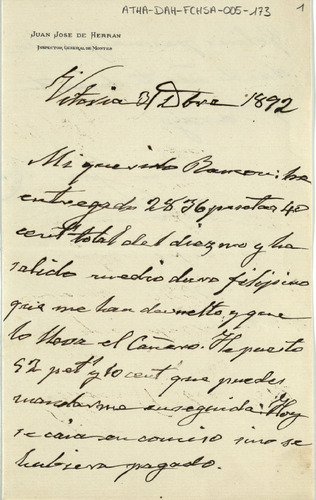 ATHA-DAH-FCHSA-005-173
1
JUAN JOSE DE HERRAN
INSPECTOR GENERAL DE MONTES
Vitoria 31 Dbre 1892
Mi querido Ramon: he
entregado 2836 pesetas 40
cents total del diezmo y ha
salido medio duro filipino
que me han devuelto, y que
lo lleva el Cañero. He puesto
52 pets y 10 cent que puedes
mandarme enseguida. Hoy
se caia en comiso sino se
hubiera pagado.